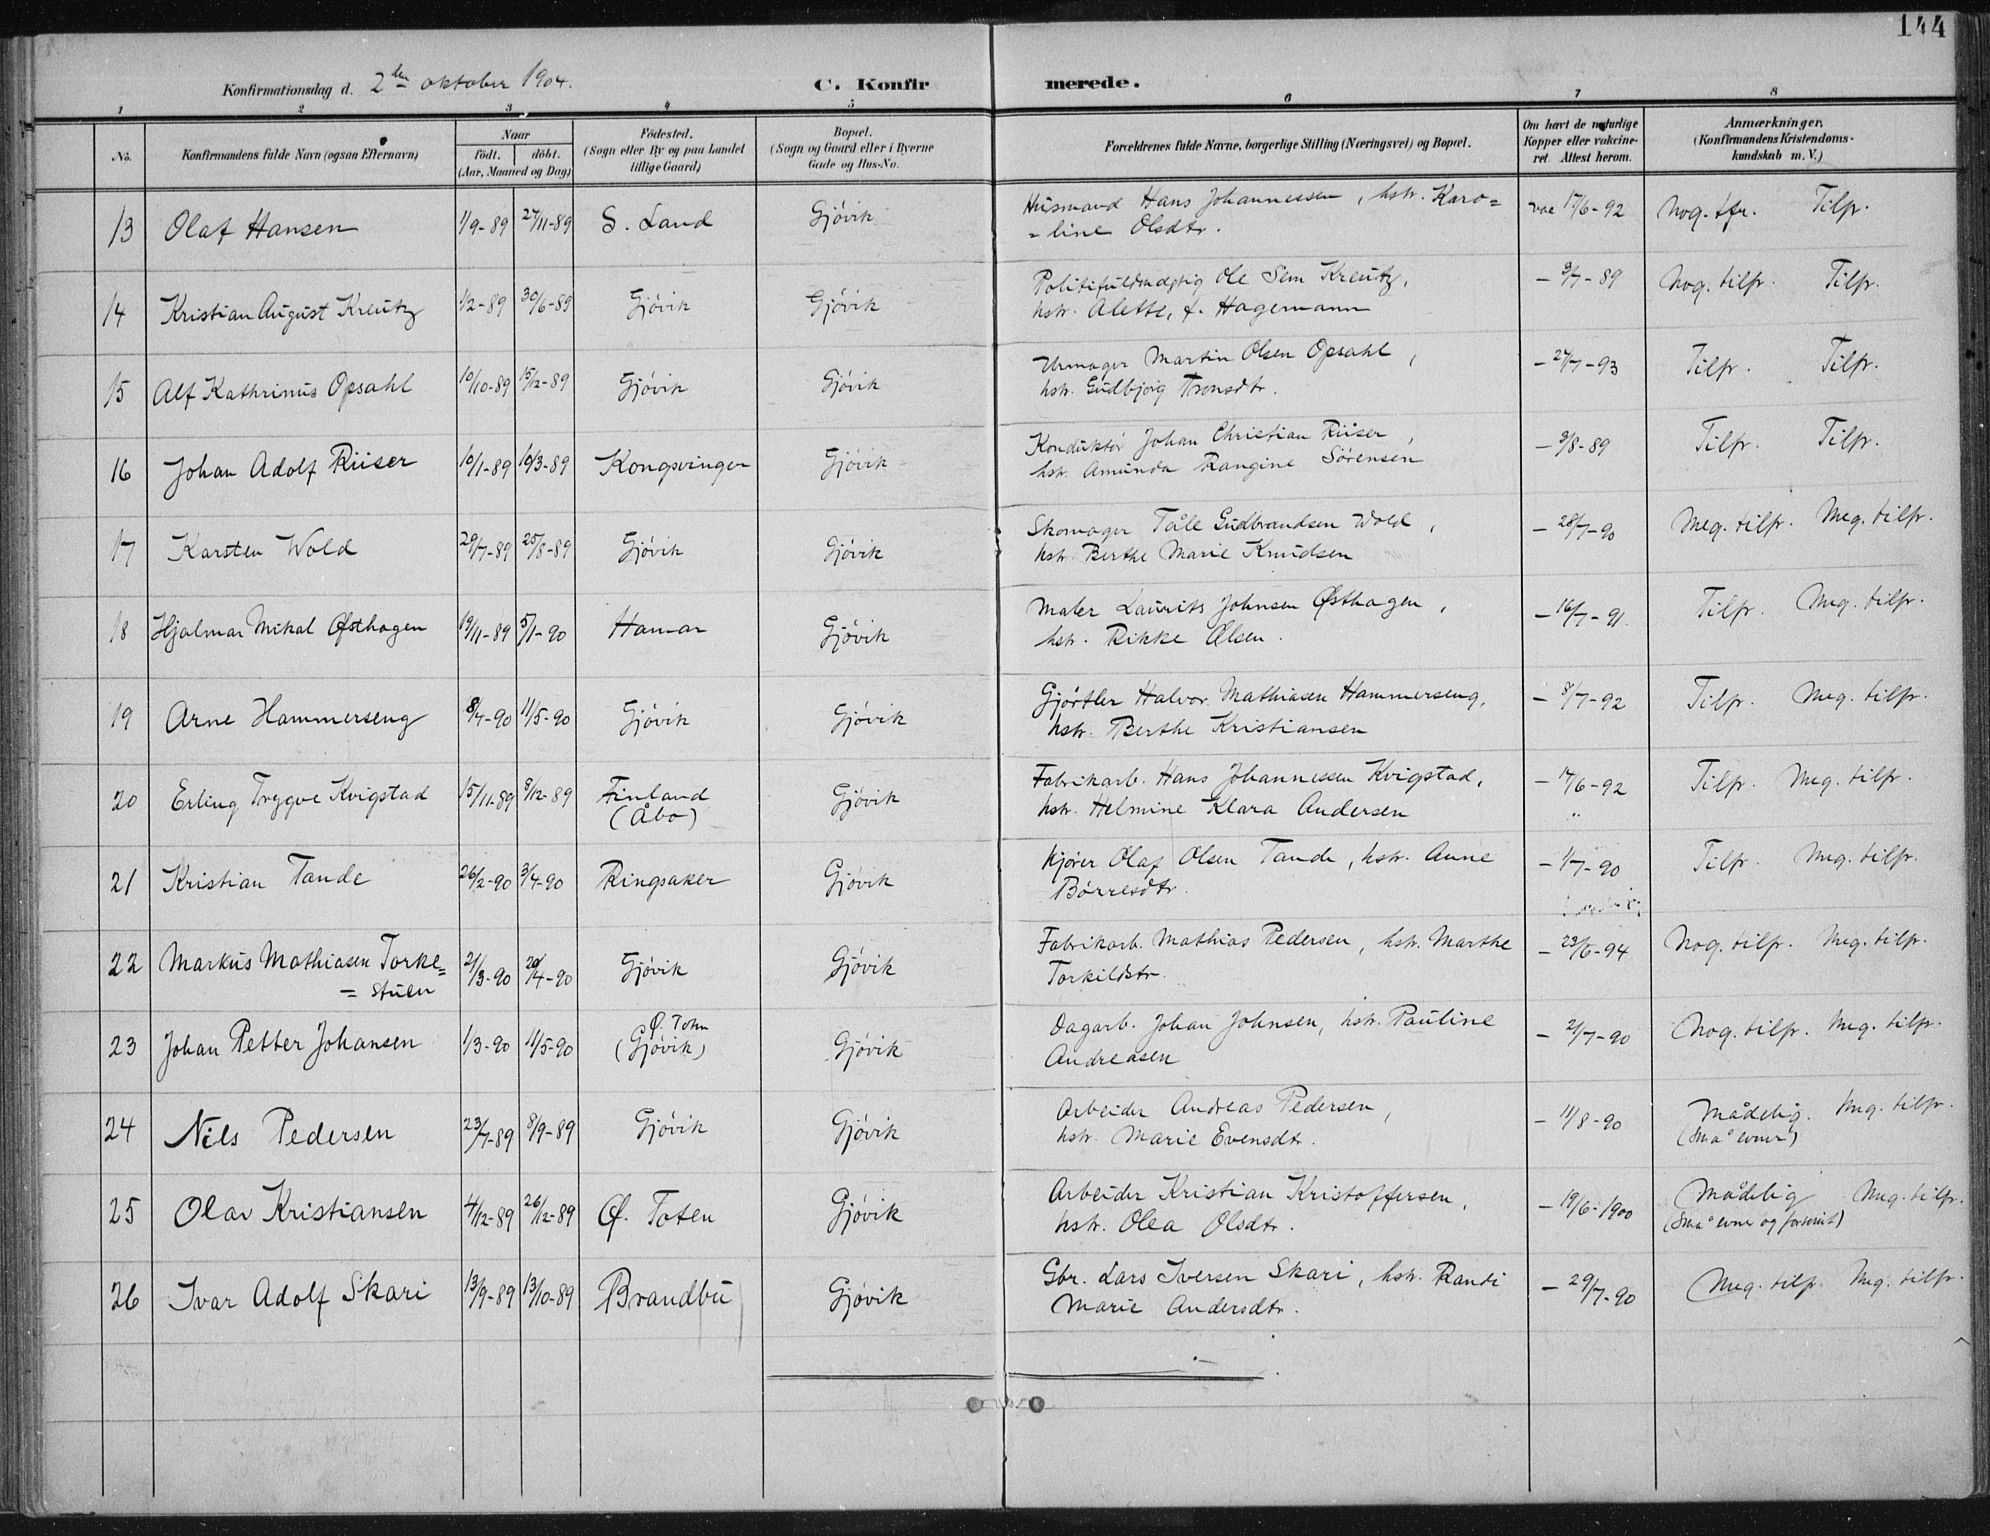 144
Konfirmationsdag d. 2den oktober 1904.
C. Konfirmerede.
1 2 3 4 5 6 7 8
No.
Konfirmandens fulde Navn (ogsaa Efternavn)
Naar
födt. döbt.
(Aar, Maaned og Dag)
Födested.
(Sogn eller By og paa Landet
tillige Gaard)
Bopæl.
(Sogn og Gaard eller i Byerne
Gade og Hus-No.
Forældrenes fulde Navne, borgerlige Stilling (Næringsvei) og Bopæl.
Om havt de naturlige
Kopper eller vakcine-
ret. Attest herom.
Anmærkninger.
(Konfirmandens Kristendoms-
kundskab m. V.)
13 Olaf Hansen 1/9-89 27/11-89 S. Land Gjövik Husmand Hans Johannessen, hstr. Karo=
=line Olsdtr. vac 17/6-92 Nog. tfr. Tilfr.
14 Kristian August Kreutz 1/2-89 30/6-89 Gjövik Gjövik Politifuldmægtig Ole Sem Kreutz,
hstr. Alette, f. Hagemann - 3/7-89 Nog. tilfr. Tilfr.
15 Alf Kathrinus Opsahl 10/10-89 15/12-89 Gjövik Gjövik Urmager Martin Olsen Opsahl,
hstr. Gudbjørg Tronsdtr. - 27/7-93 Tilfr. Tilfr.
16 Johan Adolf Riiser 10/1-89 10/3-89 Kongsvinger Gjövik Konduktör Johan Christian Riiser,
hstr. Amunda Rangine Sörensen - 3/8-89 Tilfr. Tilfr.
17 Karsten Wold 29/7-89 25/8-89 Gjövik Gjövik Skomager Tåle Gudbrandsen Wold,
hstr. Berthe Marie Knudsen - 28/7-90 Meg. tilfr. Meg. tilfr.
18 Hjalmar Mikal Østhagen 19/11-89 5/1-90 Hamar Gjövik Maler Laurits Johnsen Østhagen,
hstr. Rikke Olsen. - 16/7-91. Tilfr. Meg. tilfr.
19 Arne Hammerseng 8/4-90 11/5-90 Gjövik Gjövik Gjörtler Halvor Mathiasen Hammerseng,
hstr. Berthe Kristiansen - 8/7-92 Tilfr. Meg. tilfr.
20 Erling Trygve Kvigstad 15/11-89 8/12-89 Finland
(Åbo) Gjövik Fabrikarb. Hans Johannessen Kvigstad,
hstr. Helmine Klara Andersen - 17/6-92 Tilfr. Meg. tilfr.
21 Kristian Tande 26/2-90 3/4-90 Ringsaker Gjövik Kjörer Olaf Olsen Tande, hstr. Anne
Börresdtr. - 1/7-90 Tilfr Meg. tilfr.
22 Markus Mathiasen Torke=
=stuen 21/3-90 20/4-90 Gjövik Gjövik Fabrikarb. Mathias Pedersen, hstr. Marthe
Torkildstr. - 23/6-94 Nog. tilfr. Meg. tilfr.
23 Johan Petter Johansen 1/3-90 11/5-90 Ø. Totn
(Gjövik) Gjövik Dagarb. Johan Johnsen, hstr. Pauline
Andreasen - 2/7-90 Nog. tilfr. Meg. tilfr.
24 Nils Pedersen 23/7-89 8/9-89 Gjövik Gjövik Arbeider Andreas Pedersen,
hstr. Marie Evensdtr. - 11/8-90 Mådelig. Meg. tilfr.
(Små evner)
25 Olav Kristiansen 4/12-89 26/12-89 Ø. Toten Gjövik Arbeider Kristian Kristoffersen,
hstr. Olea Olsdtr. - 19/6-1900 Mådelig Meg. tilfr.
(Små evner og forsömt)
26 Ivar Adolf Skari 13/9-89 13/10-89 Brandbu Gjövik Gbr. Lars Iversen Skari, hstr. Randi
Marie Andersdtr. - 29/7-90 Meg. tilfr. Meg. tilfr.